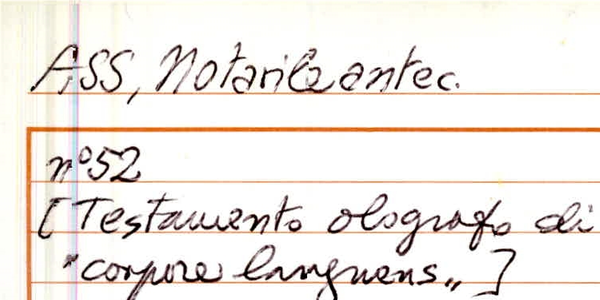 ASS, Notarile antec.
n° 52
[Testamento olografo di
"corpore languens„]